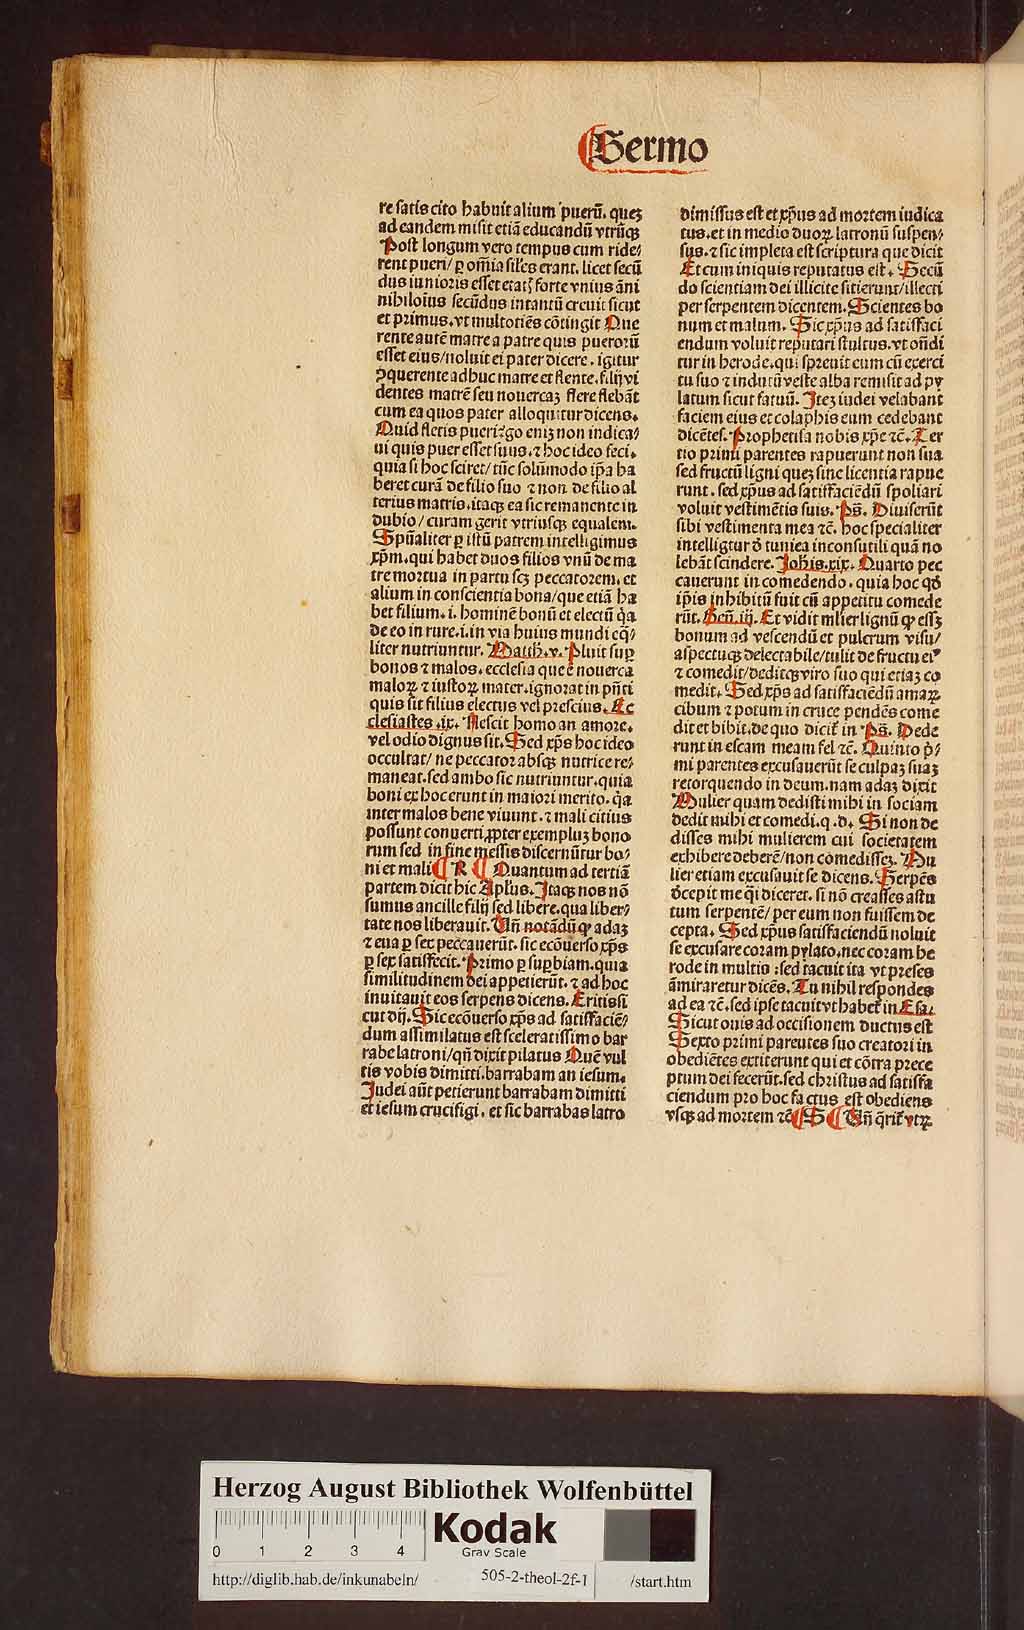 Sermo
re satis cito habuit alium puerū. quez
ad eandem misit etiā educandū vtrūqꝫ
Post longum vero tempus cum ride⸗
rent pueri/ ꝑ om̄ia siłes erant. licet secū
dus iunioris esset etatꝭ forte vnius āni
nihiloīus secūdus intantū creuit sicut
et primus. vt multotiēs cōtingit Que
rente autē matre a patre quis puerorū
esset eius/noluit ei pater dicere. igitur
ꝯquerente adhuc matre et flente. filij vi
dentes matrē seu nouercaꝫ flere flebāt
cum ea quos pater alloquitur dicens.
Quid fletis pueri? ego eniꝫ non indica⸗
ui quis puer esset suus. ⁊ hoc ideo feci.
quia si hoc sciret/ tūc solūmodo ip̄a ha
beret curā de filio suo ⁊ non de filio al
terius matris. itaqꝫ ea sic remanente in
dubio/ curam gerit vtriusqꝫ equalem.
Spūaliter ꝑ istū patrem intelligimus
xp̄m. qui habet duos filios vnū de ma
tre mortua in partu scꝫ peccatorem. et
alium in conscientia bona/que etiā ha
bet filium. i. hominē bonū et electū q̄a
de eo in rure. i. in via huius mundi eq̄⸗
liter nutriuntur. Matth. v. Pluit suꝑ
bonos ⁊ malos. ecclesia que ē nouerca
maloꝝ ⁊ iustoꝝ mater. ignorat in pn̄ti
quis sit filius electus vel prescius. Ec
clesiastes .ix. Nescit homo an amore.
vel odio dignus sit. Sed xp̄s hoc ideo
occultat/ ne peccator absqꝫ nutrice re⸗
maneat. sed ambo sic nutriuntur. quia
boni ex hoc erunt in maiori merito. q̄a
inter malos bene viuunt. ⁊ mali citius
possunt conuerti ꝓpter exempluꝫ bono
rum sed in fine messis discernūtur bo⸗
ni et mali ¶ R ¶ Quantum ad tertiā
partem dicit hic Aplus. Itaqꝫ nos nō
sumus ancille filij sed libere. qua liber⸗
tate nos liberauit. Vn̄ notādū ꝙ adaꝫ
⁊ eua ꝑ sex peccauerūt. sic ecōuerso xp̄s
ꝑ sex satisfecit. Primo ꝑ suꝑbiam. quia
similitudinem dei appetierūt. ⁊ ad hoc
inuitauit eos serpens dicens. Eritis si
cut dij. Sic ecōuerso xp̄s ad satisfaciē⸗
dum assimilatus est sceleratissimo bar
rabe latroni/ qn̄ dixit pilatus Quē vul
tis vobis dimitti. barrabam an iesum.
Judei aūt petierunt barrabam dimitti
et iesum crucifigi. et sic barrabas latro
dimissus est et xp̄us ad mortem iudica
tus. et in medio duoꝝ latronū suspen⸗
sus. ⁊ sic impleta est scriptura que dicit
Et cum iniquis reputatus est. Secū
do scientiam dei illicite sitierunt/illecti
per serpentem dicentem. Scientes bo
num et malum. Sic xp̄us ad satisfaci
endum voluit reputari stultus. vt on̄di
tur in herode. qui spreuit eum cū exerci
tu suo ⁊ indutū veste alba remisit ad py
latum sicut fatuū. Iteꝫ iudei velabant
faciem eius et colaphis eum cedebant
dicētes. Prophetisa nobis xp̄e ⁊c̄. Ter
tio primi parentes rapuerunt non sua
sed fructū ligni quez sine licentia rapue
runt. sed xp̄us ad satisfaciēdū spoliari
voluit vestimētis suis. Ps̄. Diuiserūt
sibi vestimenta mea ⁊c̄. hoc specialiter
intelligtur ꝺ̄ tunica inconsutili quā no
lebāt scindere. Joh̄is. xix. Quarto pec
cauerunt in comedendo. quia hoc qꝺ̄
ip̄is inhibitū fuit cū appetitu comede
rūt. Gen̄. iij. Et vidit mlier lignū ꝙ essꝫ
bonum ad vescendū et pulcrum visu/
aspectuqꝫ delectabile/tulit de fructu eiꝰ
⁊ comedit/deditqꝫ viro suo qui etiaꝫ co
medit. Sed xp̄s ad satisfaciēdū amaꝝ
cibum ⁊ potum in cruce pendēs come
dit et bibit. de quo dicit̄ in Ps̄. Dede
runt in escam meam fel ⁊c̄. Quinto p̄⸗
mi parentes excusauerūt se culpaꝫ suaꝫ
retorquendo in deum. nam adaꝫ dixit
Mulier quam dedisti mihi in sociam
dedit mihi et comedi. q. d. Si non de
disses mihi mulierem cui societatem
exhibere deberē/non comedissez. Mu
lier etiam excusauit se dicens. Serpēs
ꝺ̄cepit me q̄i diceret. si nō creasses astu
tum serpentē/ per eum non fuissem de
cepta. Sed xp̄us satisfaciendū noluit
se excusare coram pylato. nec coram he
rode in multis : sed tacuit ita vt preses
āmiraretur dicēs. Tu nihil respondes
ad ea ⁊c̄. sed ipse tacuit vt habet̄ in Esa.
Sicut ouis ad occisionem ductus est
Sexto primi parentes suo creatori in
obediētes extiterunt qui et cōtra prece
ptum dei fecerūt. sed christus ad satisfa
ciendum pro hoc factus est obediens
vsqꝫ ad mortem ⁊c̄ ¶ S ¶ Vn̄ q̄rit̄ vtꝝ
Herzog August Bibliothek Wolfenbüttel
0 1 2 3 4
Kodak
Gray Scale
http://diglib.hab.de/inkunabeln/ 505-2-theol-2f-1 /start.htm